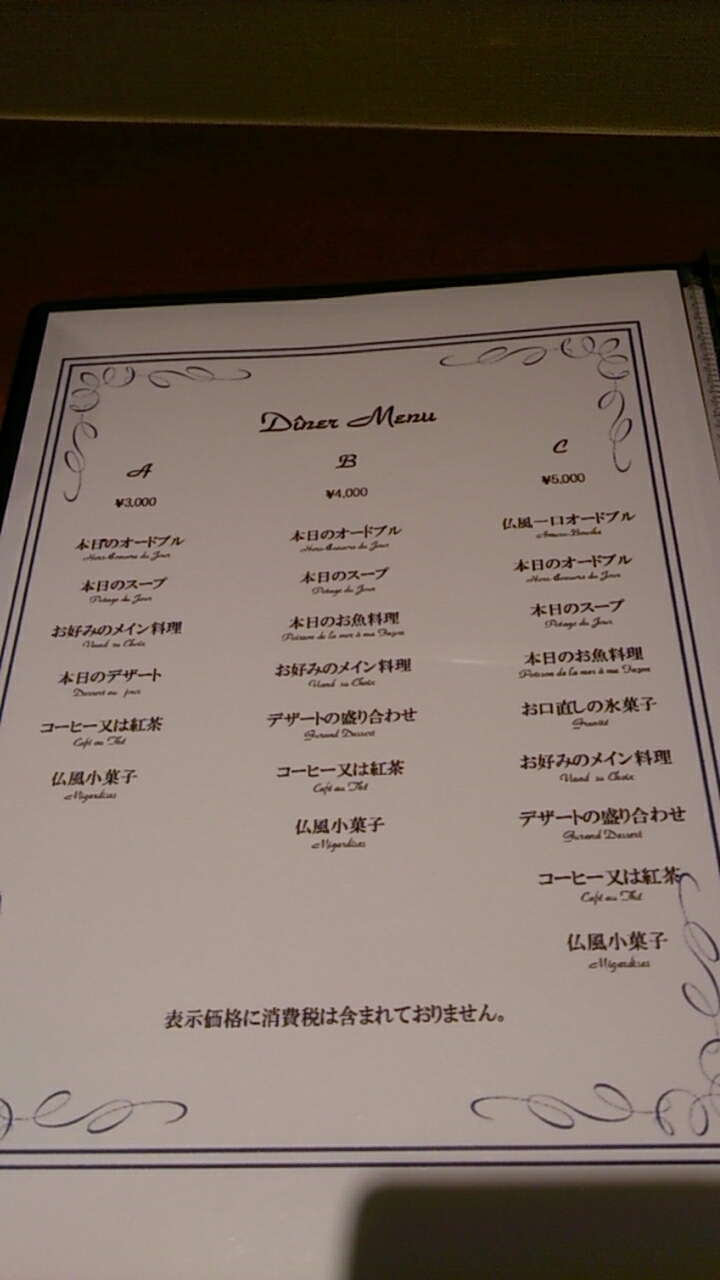 Dîner Menu
A
¥3,000
本日のオードブル
Hors-Doeuvre du Jour
本日のスープ
Potage du Jour
お好みのメイン料理
Viand au Choix
本日のデザート
Dessert au jour
コーヒー又は紅茶
Café au Thé
仏風小菓子
Migardises
B
¥4,000
本日のオードブル
Hors-Doeuvre du Jour
本日のスープ
Potage du Jour
本日のお魚料理
Poisson de la mer à ma Façon
お好みのメイン料理
Viand au Choix
デザートの盛り合わせ
Gurand Dessert
コーヒー又は紅茶
Café au Thé
仏風小菓子
Migardises
C
¥5,000
仏風一口オードブル
Amuse-Bouche
本日のオードブル
Hors-Doeuvre du Jour
本日のスープ
Potage du Jour
本日のお魚料理
Poisson de la mer à ma Façon
お口直しの氷菓子
Granité
お好みのメイン料理
Viand au Choix
デザートの盛り合わせ
Gurand Dessert
コーヒー又は紅茶
Café au Thé
仏風小菓子
Migardises
表示価格に消費税は含まれておりません。